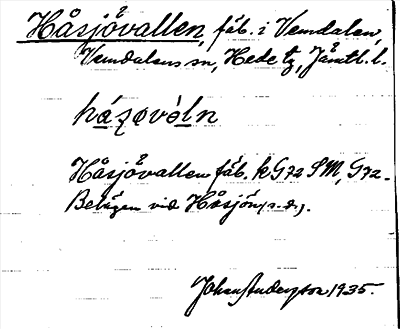 Håsjövallen, fäb. i Vemdalen,
Vemdalens sn, Hede tg, Jämtl. l.
håʒøvèln
Håsjövallen fäb. k G72 SM, G72.
Belägen vid Håsjön (s.d.).
Johan Anderzon 1935.